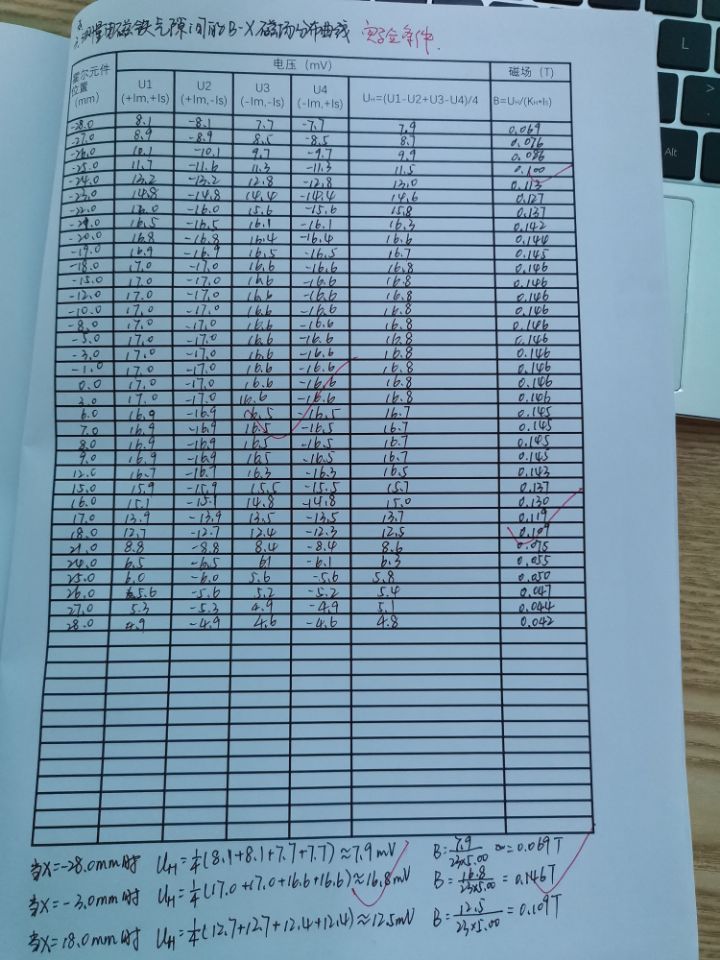 测量电磁铁气隙间的B-X磁场分布曲线 实验条件.
霍尔元件位置(mm) 电压(mV) 磁场(T)
U1(+Im,+Is) U2(+Im,-Is) U3(-Im,-Is) U4(-Im,+Is) UH=(U1-U2+U3-U4)/4 B=UH/(KH*Is)
-28.0 8.1 -8.1 7.7 -7.7 7.9 0.069
-27.0 8.9 -8.9 8.5 -8.5 8.7 0.076
-26.0 10.1 -10.1 9.7 -9.7 9.9 0.086
-25.0 11.7 -11.6 11.3 -11.3 11.5 0.100
-24.0 13.2 -13.2 12.8 -12.8 13.0 0.113
-23.0 14.8 -14.8 14.4 -14.4 14.6 0.127
-22.0 16.0 -16.0 15.6 -15.6 15.8 0.137
-21.0 16.5 -16.5 16.1 -16.1 16.3 0.142
-20.0 16.8 -16.8 16.4 -16.4 16.6 0.144
-19.0 16.9 -16.9 16.5 -16.5 16.7 0.145
-18.0 17.0 -17.0 16.6 -16.6 16.8 0.146
-15.0 17.0 -17.0 16.6 -16.6 16.8 0.146
-12.0 17.0 -17.0 16.6 -16.6 16.8 0.146
-10.0 17.0 -17.0 16.6 -16.6 16.8 0.146
-8.0 17.0 -17.0 16.6 -16.6 16.8 0.146
-5.0 17.0 -17.0 16.6 -16.6 16.8 0.146
-3.0 17.0 -17.0 16.6 -16.6 16.8 0.146
-1.0 17.0 -17.0 16.6 -16.6 16.8 0.146
0.0 17.0 -17.0 16.6 -16.6 16.8 0.146
3.0 17.0 -17.0 16.6 -16.6 16.8 0.146
6.0 16.9 -16.9 16.5 -16.5 16.7 0.145
7.0 16.9 -16.9 16.5 -16.5 16.7 0.145
8.0 16.9 -16.9 16.5 -16.5 16.7 0.145
9.0 16.9 -16.9 16.5 -16.5 16.7 0.145
12.0 16.7 -16.7 16.3 -16.3 16.5 0.143
15.0 15.9 -15.9 15.5 -15.5 15.7 0.137
16.0 15.1 -15.1 14.8 -14.8 15.0 0.130
17.0 13.9 -13.9 13.5 -13.5 13.7 0.119
18.0 12.7 -12.7 12.4 -12.3 12.5 0.109
21.0 8.8 -8.8 8.4 -8.4 8.6 0.075
24.0 6.5 -6.5 61 -6.1 6.3 0.055
25.0 6.0 -6.0 5.6 -5.6 5.8 0.050
26.0 5.6 -5.6 5.2 -5.2 5.4 0.047
27.0 5.3 -5.3 4.9 -4.9 5.1 0.044
28.0 4.9 -4.9 4.6 -4.6 4.8 0.042
当X=-28.0mm时 UH=1/4(8.1+8.1+7.7+7.7)≈7.9mV B=7.9/(23×5.00)≈0.069T
当X=-3.0mm时 UH=1/4(17.0+17.0+16.6+16.6)≈16.8mV B=16.8/(23×5.00)=0.146T
当X=18.0mm时 UH=1/4(12.7+12.7+12.4+12.4)≈12.5mV B=12.5/(23×5.00)=0.109T
Alt